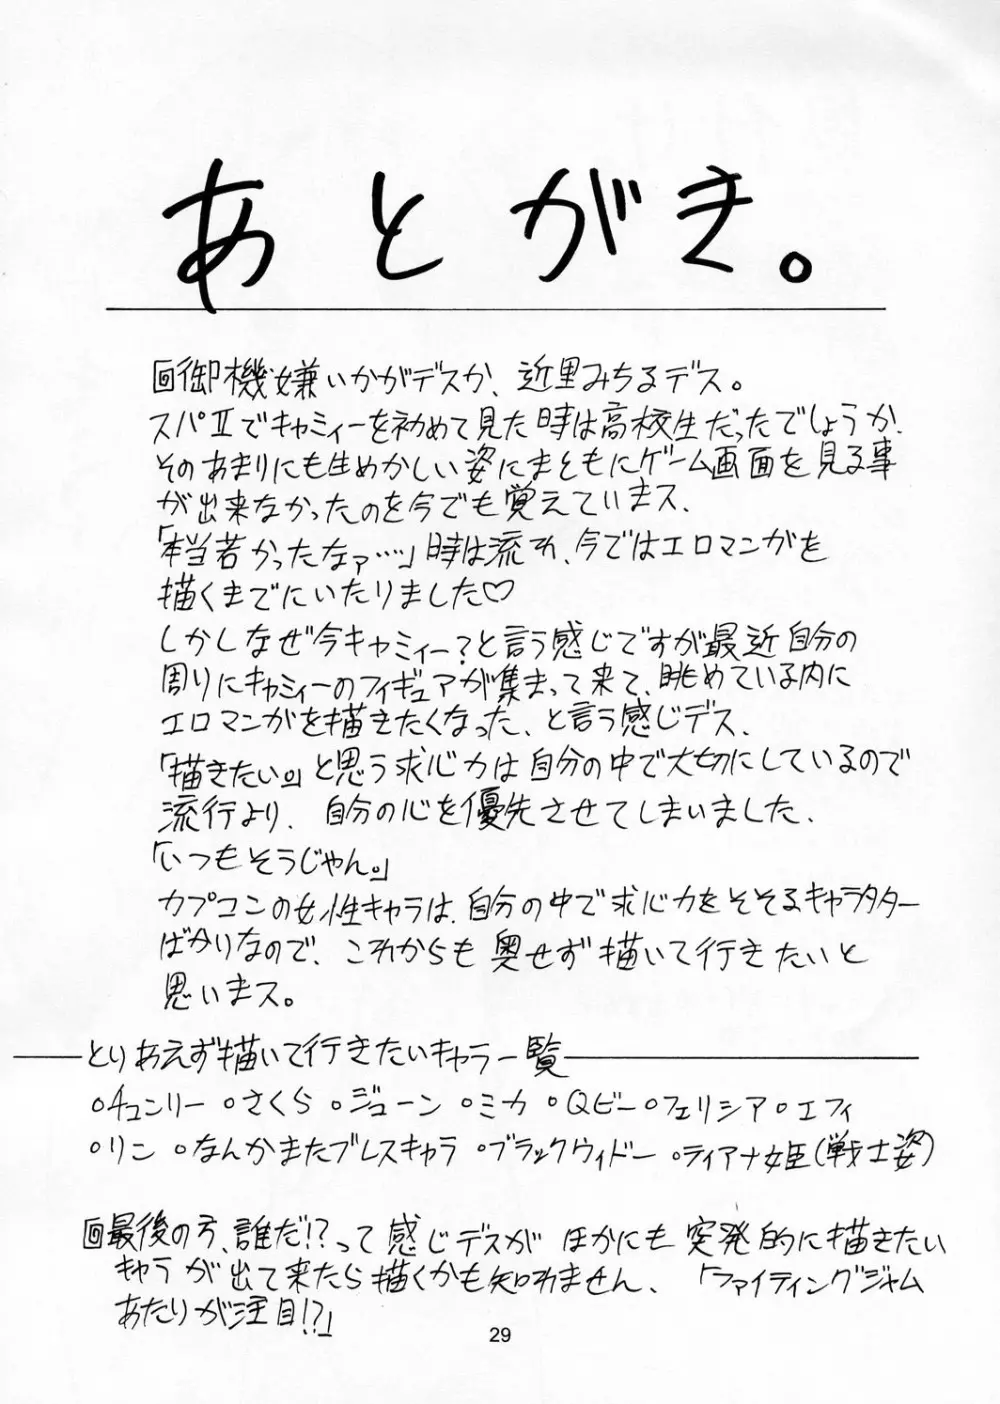 あとがき。
回御機嫌いかがデスか、近里みちるデス。
スパⅡでキャミィーを初めて見た時は高校生だったでしょうか、
そのあまりにも生めかしい姿にまともにゲーム画面を見る事
が出来なかったのを今でも覚えていまス、
「本当若かったなァ…」時は流れ、今ではエロマンガを
描くまでにいたりました♡
しかしなぜ今キャミィー?と言う感じですが最近自分の
周りにキャミィーのフィギュアが集まって来て、眺めている内に
エロマンガを描きたくなった、と言う感じデス、
「描きたい。」と思う求心力は自分の中で大切にしているので
流行より、自分の心を優先させてしまいました、
「いつもそうじゃん。」
カプコンの女性キャラは、自分の中で求心力をそそるキャラクター
ばかりなので、これからも臭せず描いて行きたいと
思いまス。
とりあえず描いて行きたいキャラ一覧
○チュンリー ○さくら ○ジューン ○ミカ ○Qビー ○フェリシア ○エフィ
○リン ○なんかまたブレスキャラ ○ブラックウィドー ○ティアナ姫(戦士姿)
回最後の方、誰だ!?って感じデスがほかにも突発的に描きたい
キャラが出て来たら描くかも知れません、「ファイティングジャム
あたりが注目!?」
29